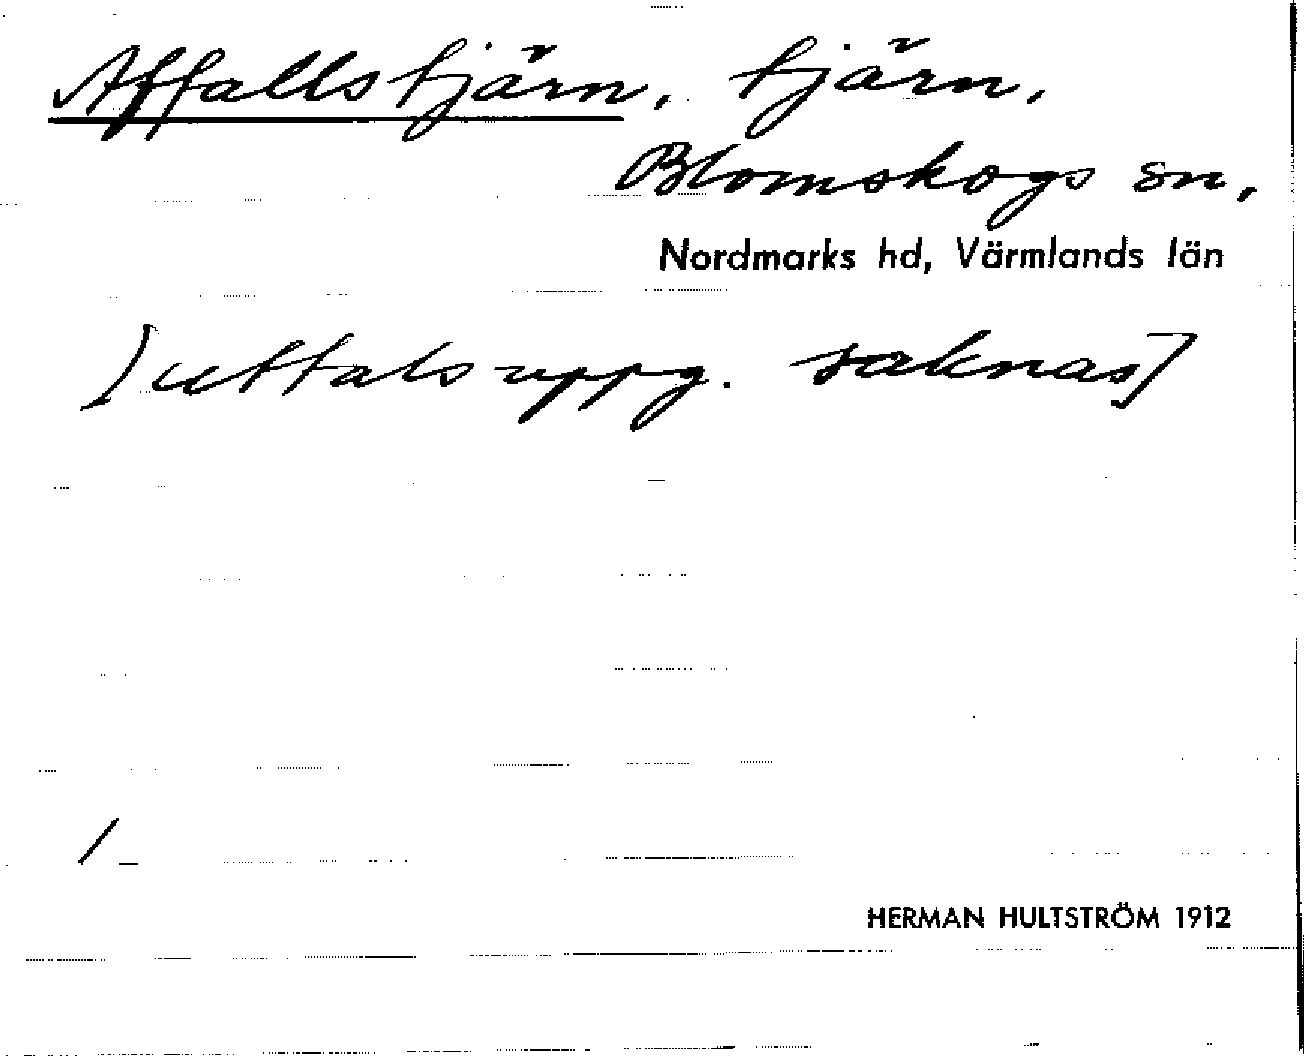 Affallstjärn, tjärn,
Blomskogs sn,
Nordmarks hd, Värmlands län
[uttalsuppg. saknas]
/
HERMAN HULTSTRÖM 1912